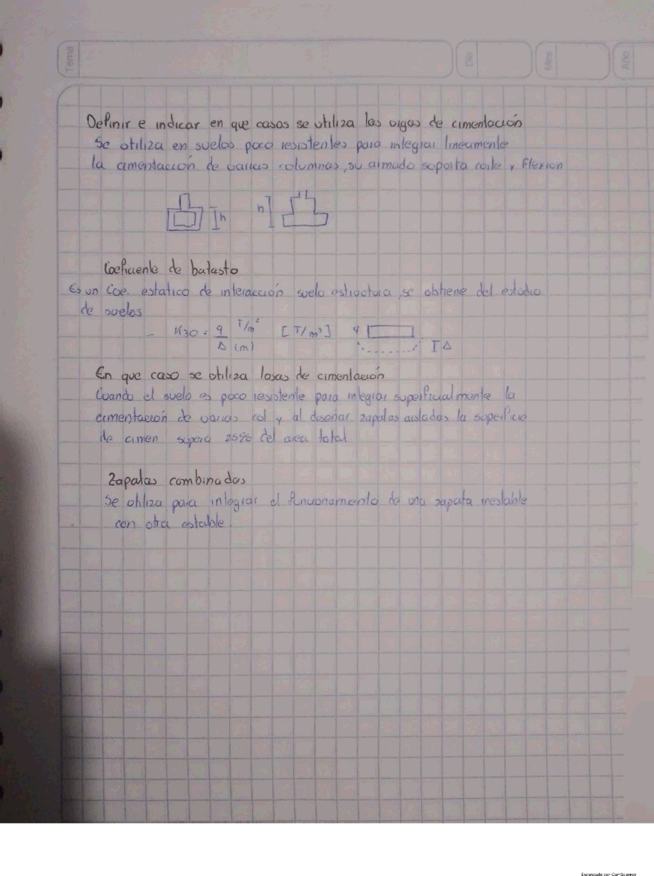 Tema
Dia
Mes
Año
Definir e indicar en que casos se utiliza las vigas de cimentación
Se utiliza en suelos poco resistentes para integrar linealmente
la cimentación de varias columnas, su armado soporta corte y flexion
h
h
Coeficiente de balasto
Es un Coe. estatico de interacción suelo estructura, se obtiene del estudio
de suelos
- K30 = q/Δ T/m²/(m) [T/m³] Δ
En que caso se utiliza losas de cimentación
Cuando el suelo es poco resistente para integrar superficialmente la
cimentación de varias col y al diseñar zapatas aisladas la superficie
de cimen supera 25% del area total
Zapatas combinadas
Se utiliza para integrar el funcionamiento de una zapata inestable
con otra estable.
Escaneado con CamScanner